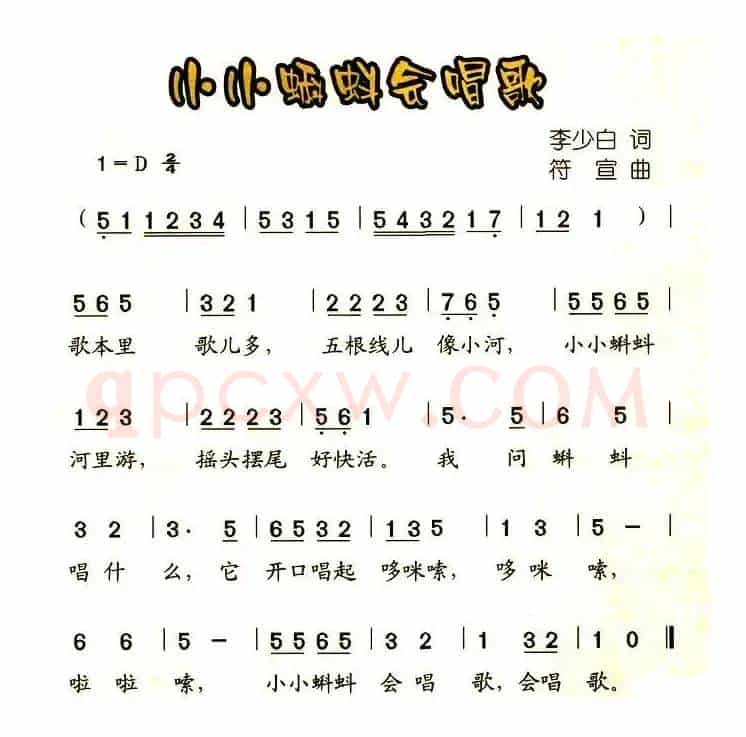 小小蝌蚪会唱歌
李少白 词
1=D 2/4
符 宣 曲
( 5 1 1 2 3 4 | 5 3 1 5 | 5 4 3 2 1 7 | 1 2 1 ) |
5 6 5 | 3 2 1 | 2 2 2 3 | 7 6 5 | 5 5 6 5 |
歌本里 歌儿多, 五根线儿 像小河, 小小蝌蚪
qpcxw.COM
1 2 3 | 2 2 2 3 | 5 6 1 | 5· 5 | 6 5 |
河里游, 摇头摆尾 好快活。 我 问 蝌 蚪
3 2 | 3· 5 | 6 5 3 2 | 1 3 5 | 1 3 | 5 – |
唱什 么, 它 开口唱起 哆咪嗦, 哆 咪 嗦,
6 6 | 5 – | 5 5 6 5 | 3 2 | 1 3 2 | 1 0 ‖
啦 啦 嗦, 小小蝌蚪 会 唱 歌, 会唱 歌。